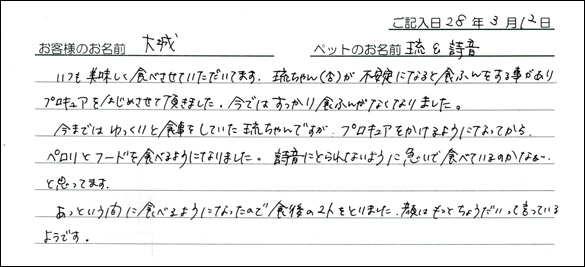 ご記入日 28 年 3 月 12 日
お客様のお名前 大城 ペットのお名前 琉 & 詩音
いつも美味しく食べさせていただいてます。琉ちゃん(♂)が不安定になると食ふんをする事があり
プロキュアをはじめさせて頂きました。今ではすっかり食ふんがなくなりました。
今まではゆっくりと食事をしていた琉ちゃんですが、プロキュアをかけるようになってから、
ペロリとフードを食べるようになりました。詩音にとられないように急いで食べているのかなぁー
と思ってます。
あっという間に食べるようになったので食後の2人をとりました。顔はもっとちょうだいって言っている
ようです。